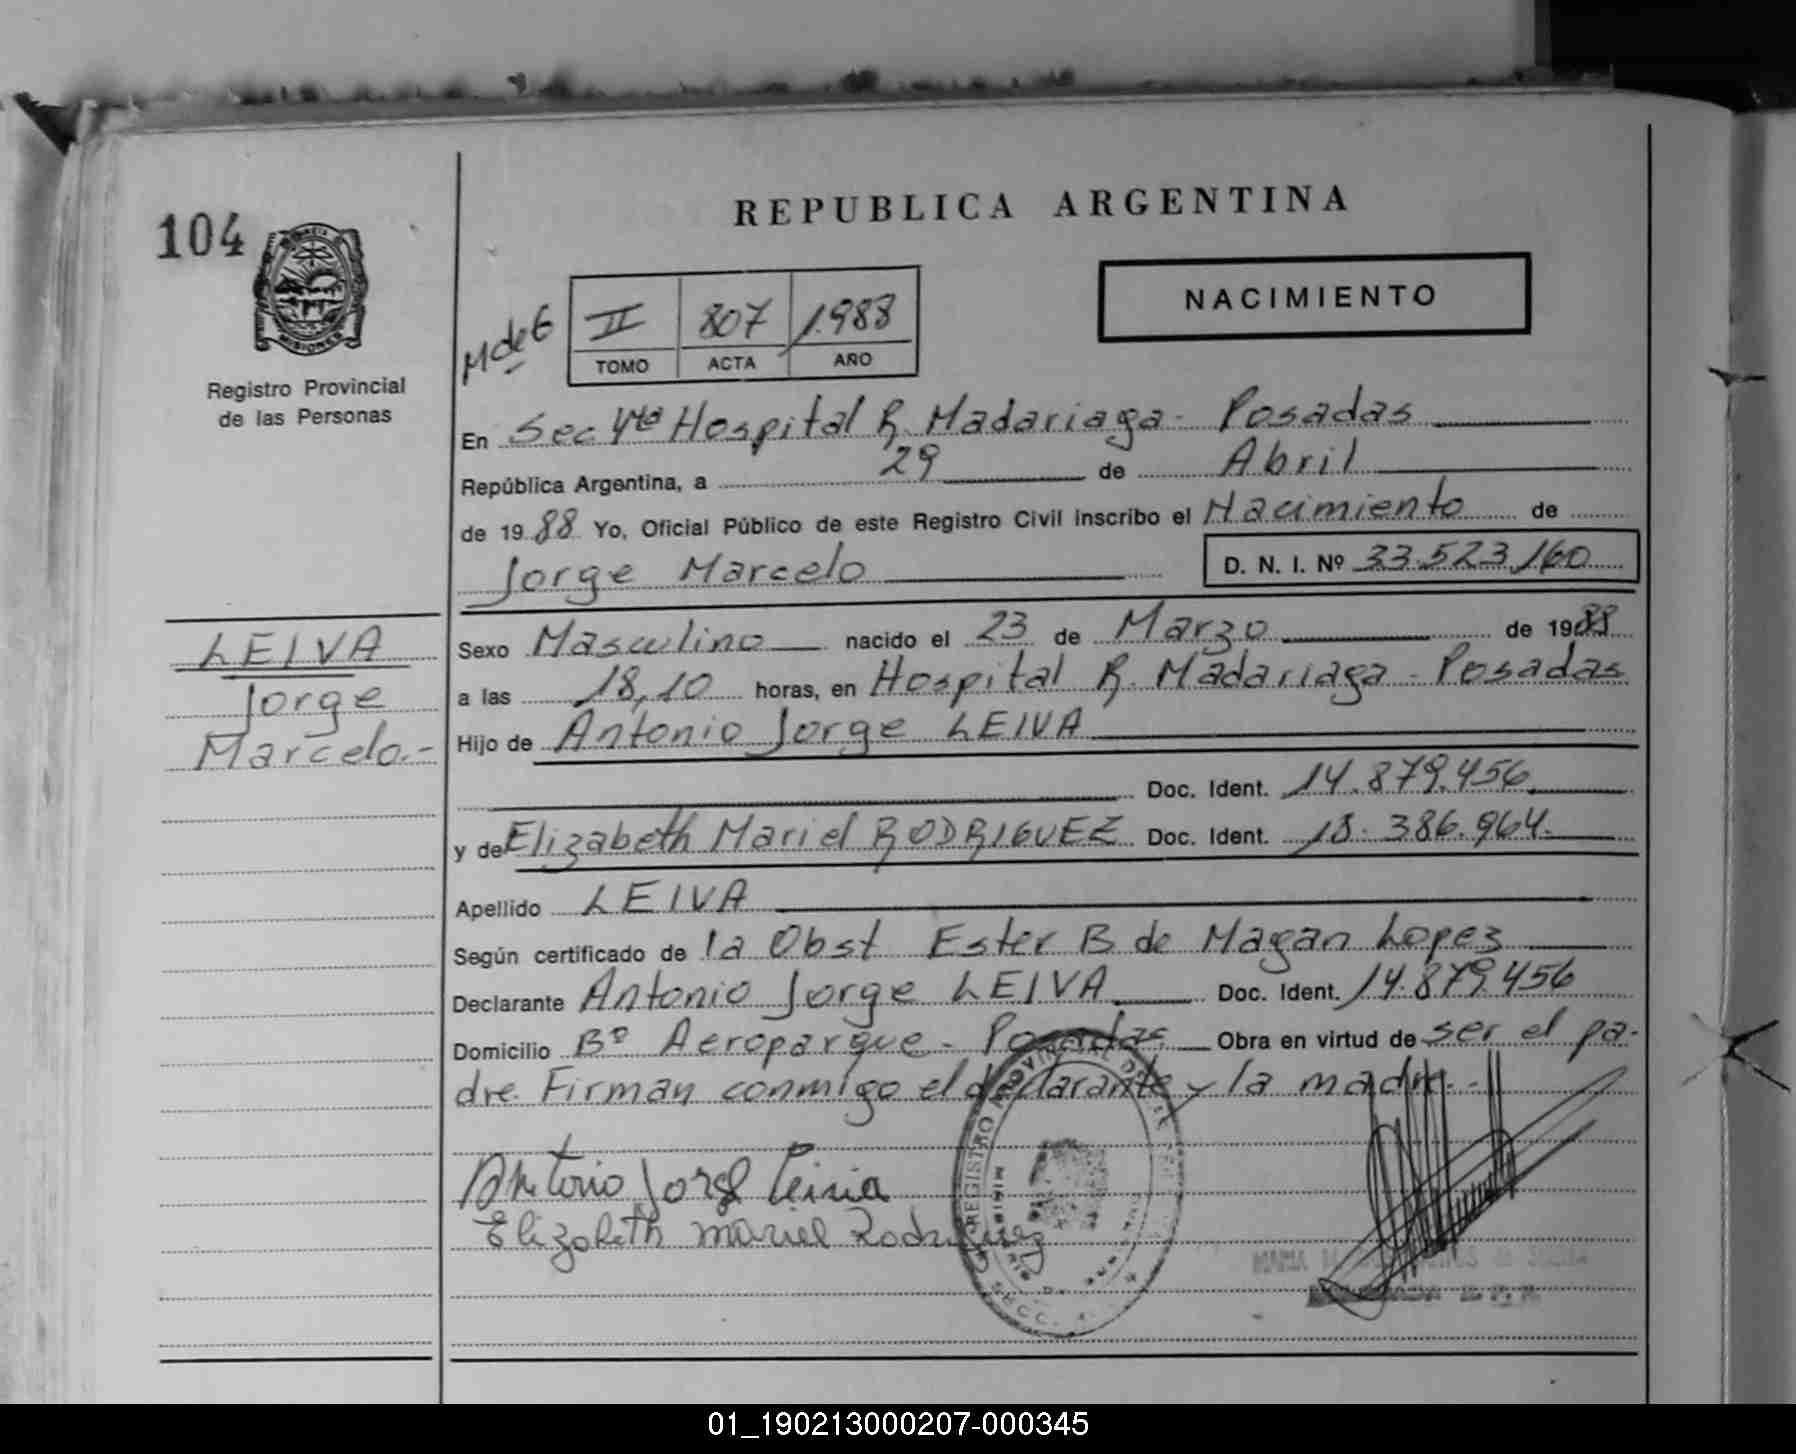 104
REPUBLICA ARGENTINA
MISIONES
Registro Provincial
de las Personas
M de G
II 807 1.988
TOMO ACTA AÑO
NACIMIENTO
En Sec 4ta Hospital R. Madariaga - Posadas
República Argentina, a 29 de Abril
de 1988 Yo, Oficial Público de este Registro Civil inscribo el Nacimiento de
Jorge Marcelo D. N. I. Nº 33.523.160
LEIVA
Jorge
Marcelo.-
Sexo Masculino nacido el 23 de Marzo de 1988
a las 18,10 horas, en Hospital R. Madariaga - Posadas
Hijo de Antonio Jorge LEIVA
Doc. Ident. 14.879.456
y de Elizabeth Mariel RODRIGUEZ Doc. Ident. 18.386.964.
Apellido LEIVA
Según certificado de la Obst Ester B de Magan Lopez
Declarante Antonio Jorge LEIVA Doc. Ident. 14.879.456
Domicilio Bº Aeroparque - Posadas Obra en virtud de ser el pa-
dre. Firman conmigo el declarante y la madre.-
Antonio Jorge Leiva
Elizabeth Mariel Rodriguez
REGISTRO PROVINCIAL DE LAS
01_190213000207-000345